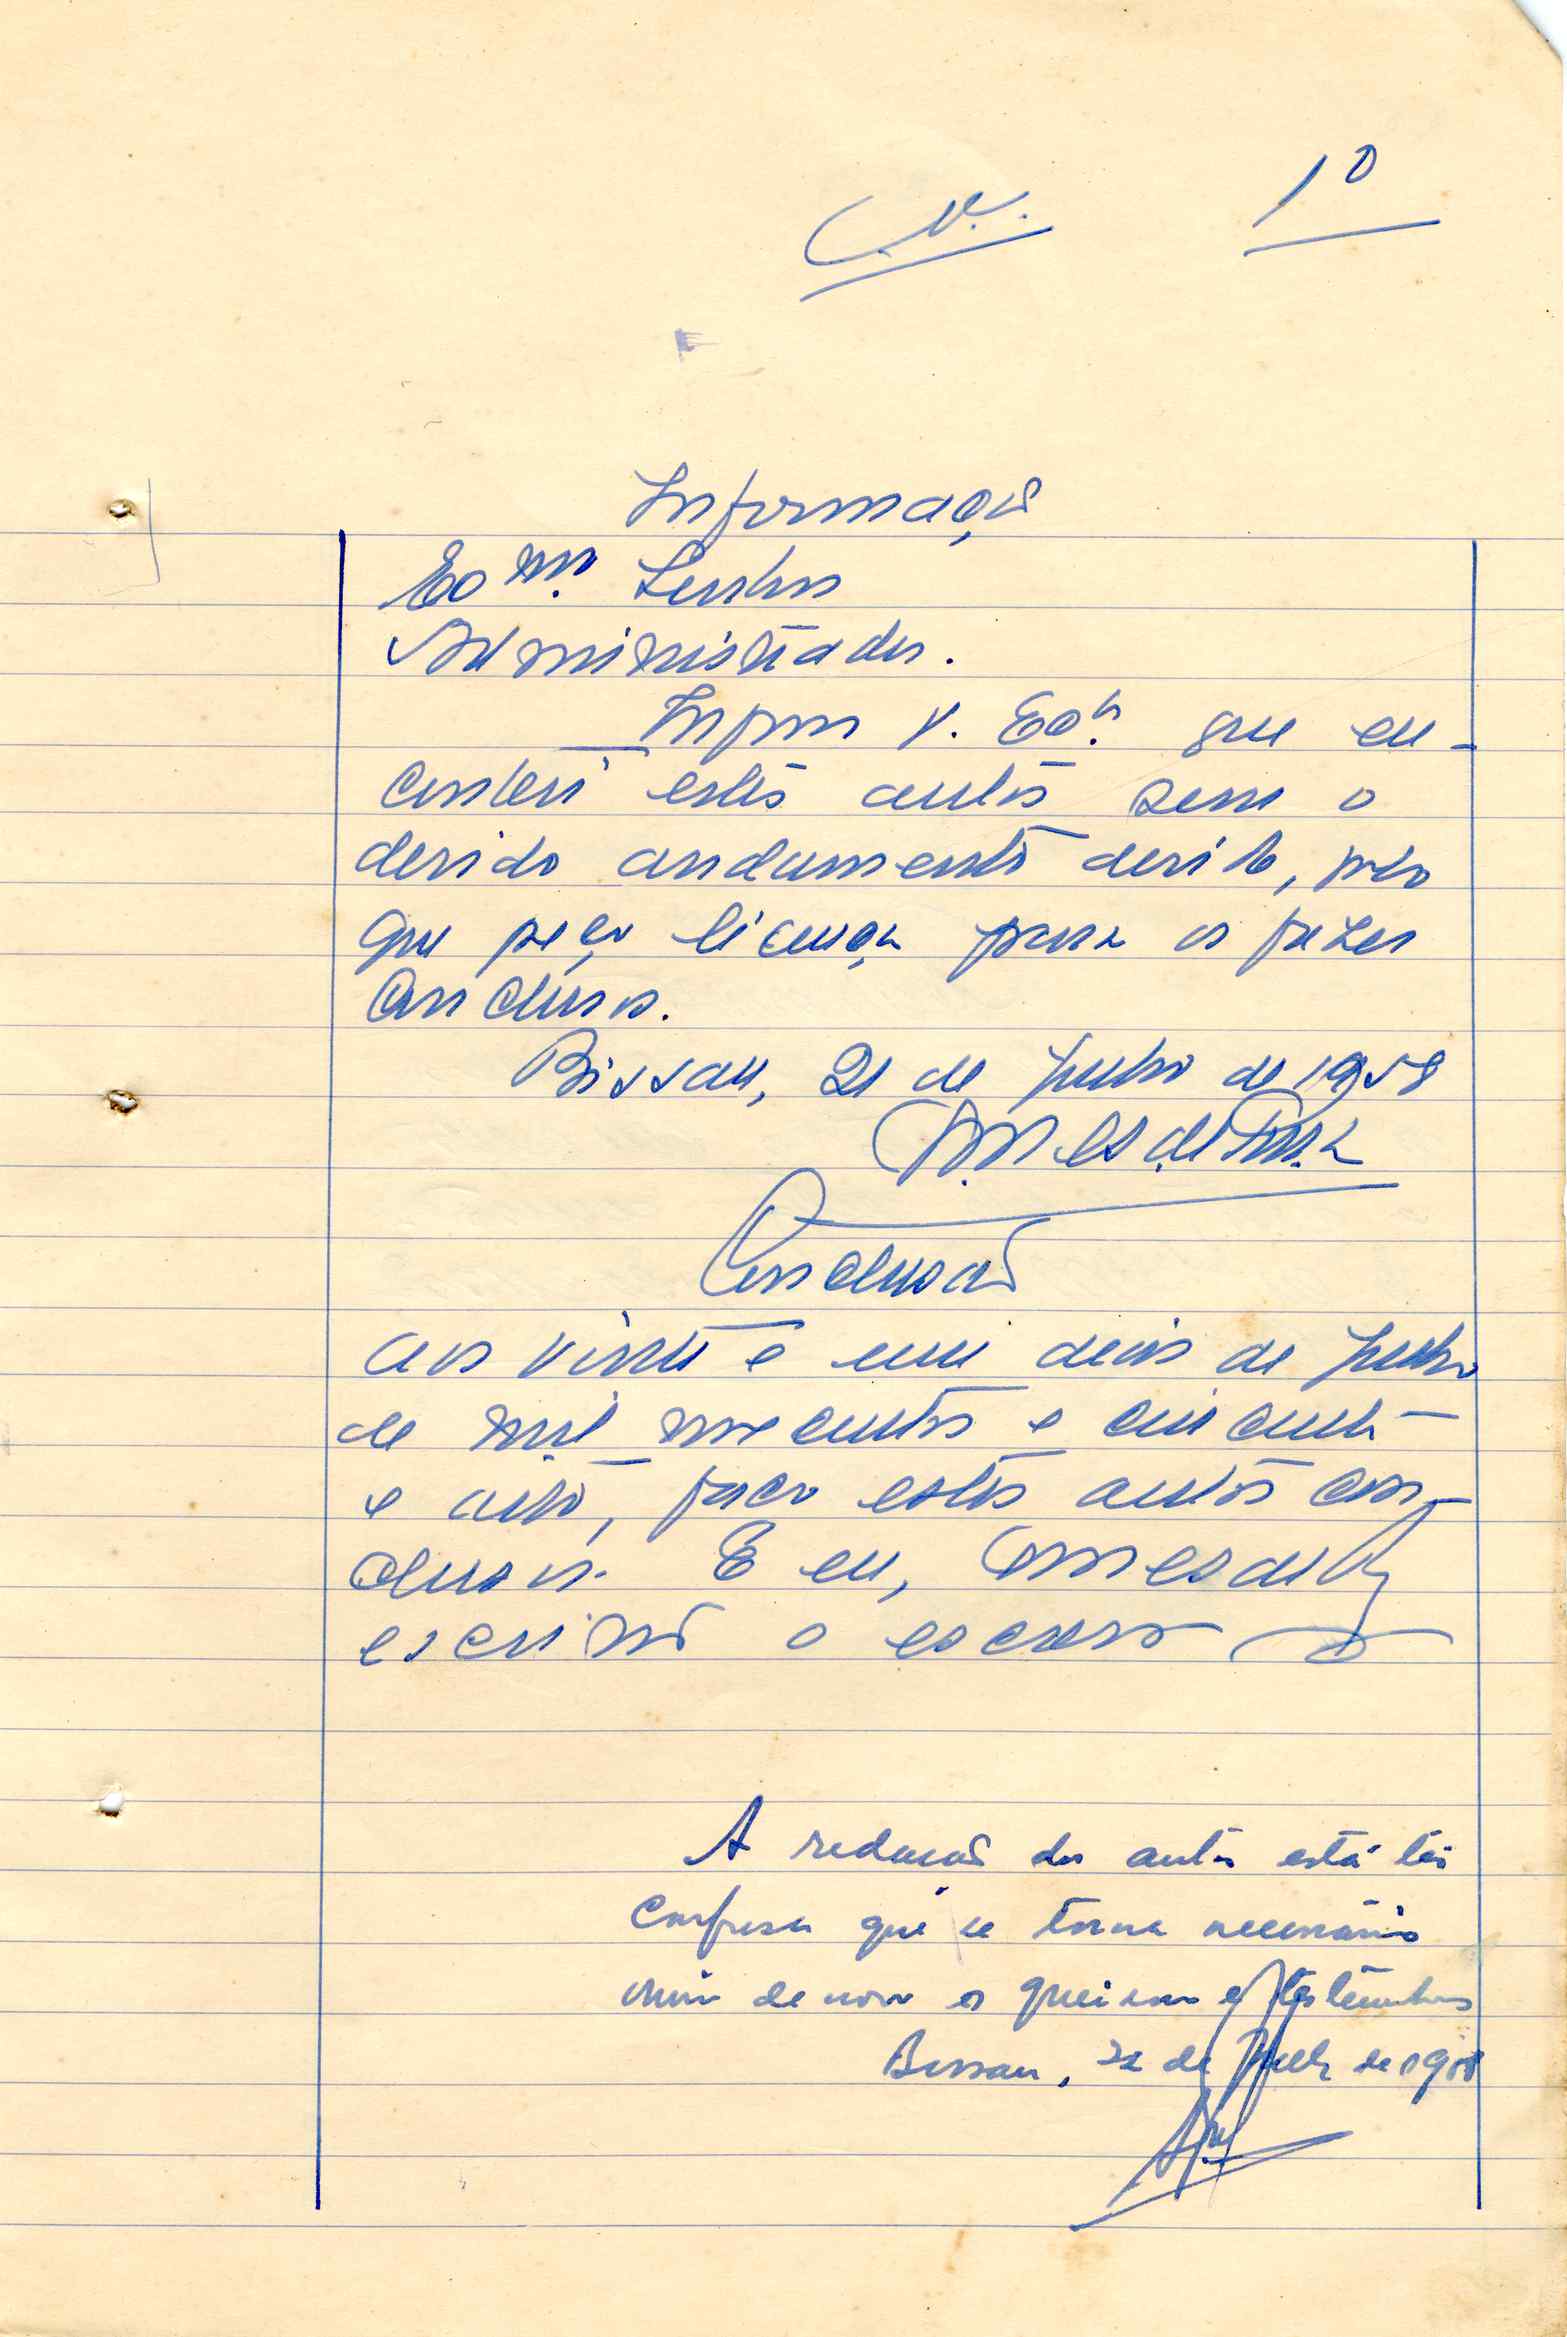 1º
Informação
Exmº. Senhor
Administrador.
Informo V. Exª. que en-
contrei estes autos sem o
devido andamento devido, pelo
que peço licença para os fazer
conclusos.
Bissau, 21 de Julho de 1958
Conclusão
Aos vinte e um dias de Julho
de mil novecentos e cincoenta
e oito, faço estes autos con-
clusos. E eu,
escrivão o escrevo
A redacção dos autos está tão
confusa que se torna necessário
ouvir de novo o queixoso e testemunhas
Bissau, 22 de Julho de 1958